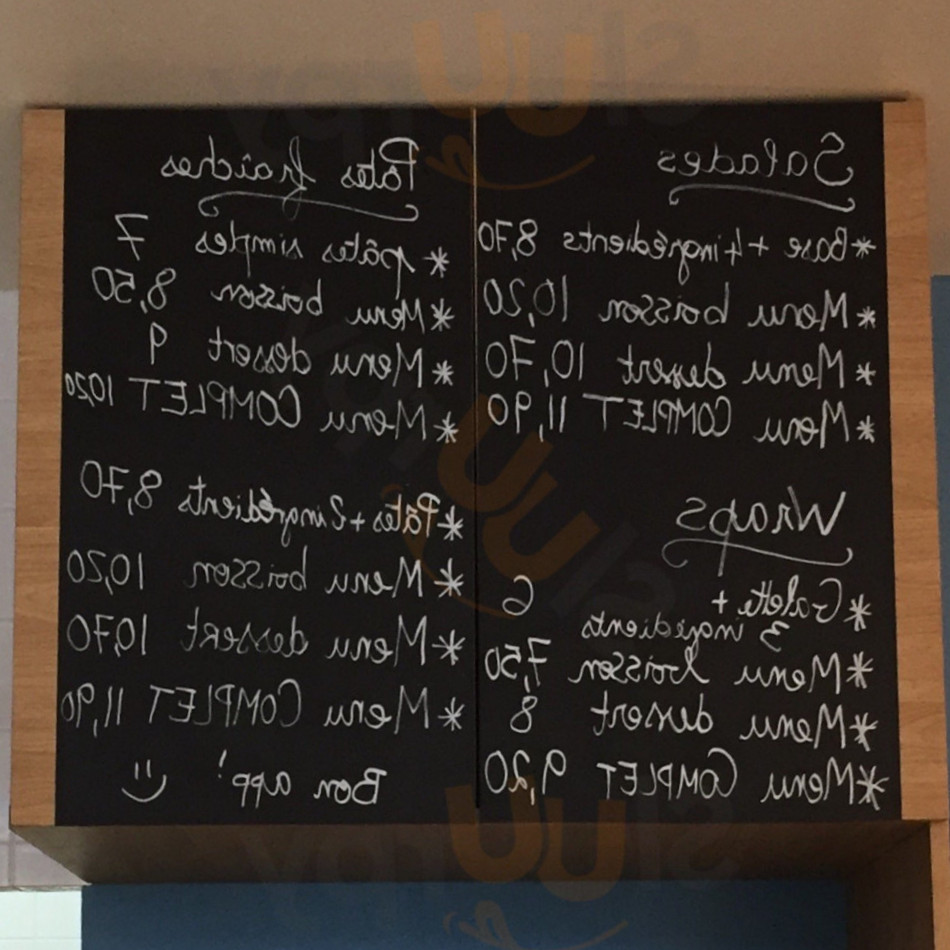 Salades
* Base + 4 ingrédients 8,70
* Menu boisson 10,20
* Menu dessert 10,70
* Menu COMPLET 11,90
Wraps
* Galette + 6
3 ingrédients
* Menu boisson 7,50
* Menu dessert 8
* Menu COMPLET 9,20
Pâtes fraîches
* pâtes simples 7
* Menu boisson 8,50
* Menu dessert 9
* Menu COMPLET 10,20
* Pâtes + 2 ingrédients 8,70
* Menu boisson 10,20
* Menu dessert 10,70
* Menu COMPLET 11,90
Bon app!